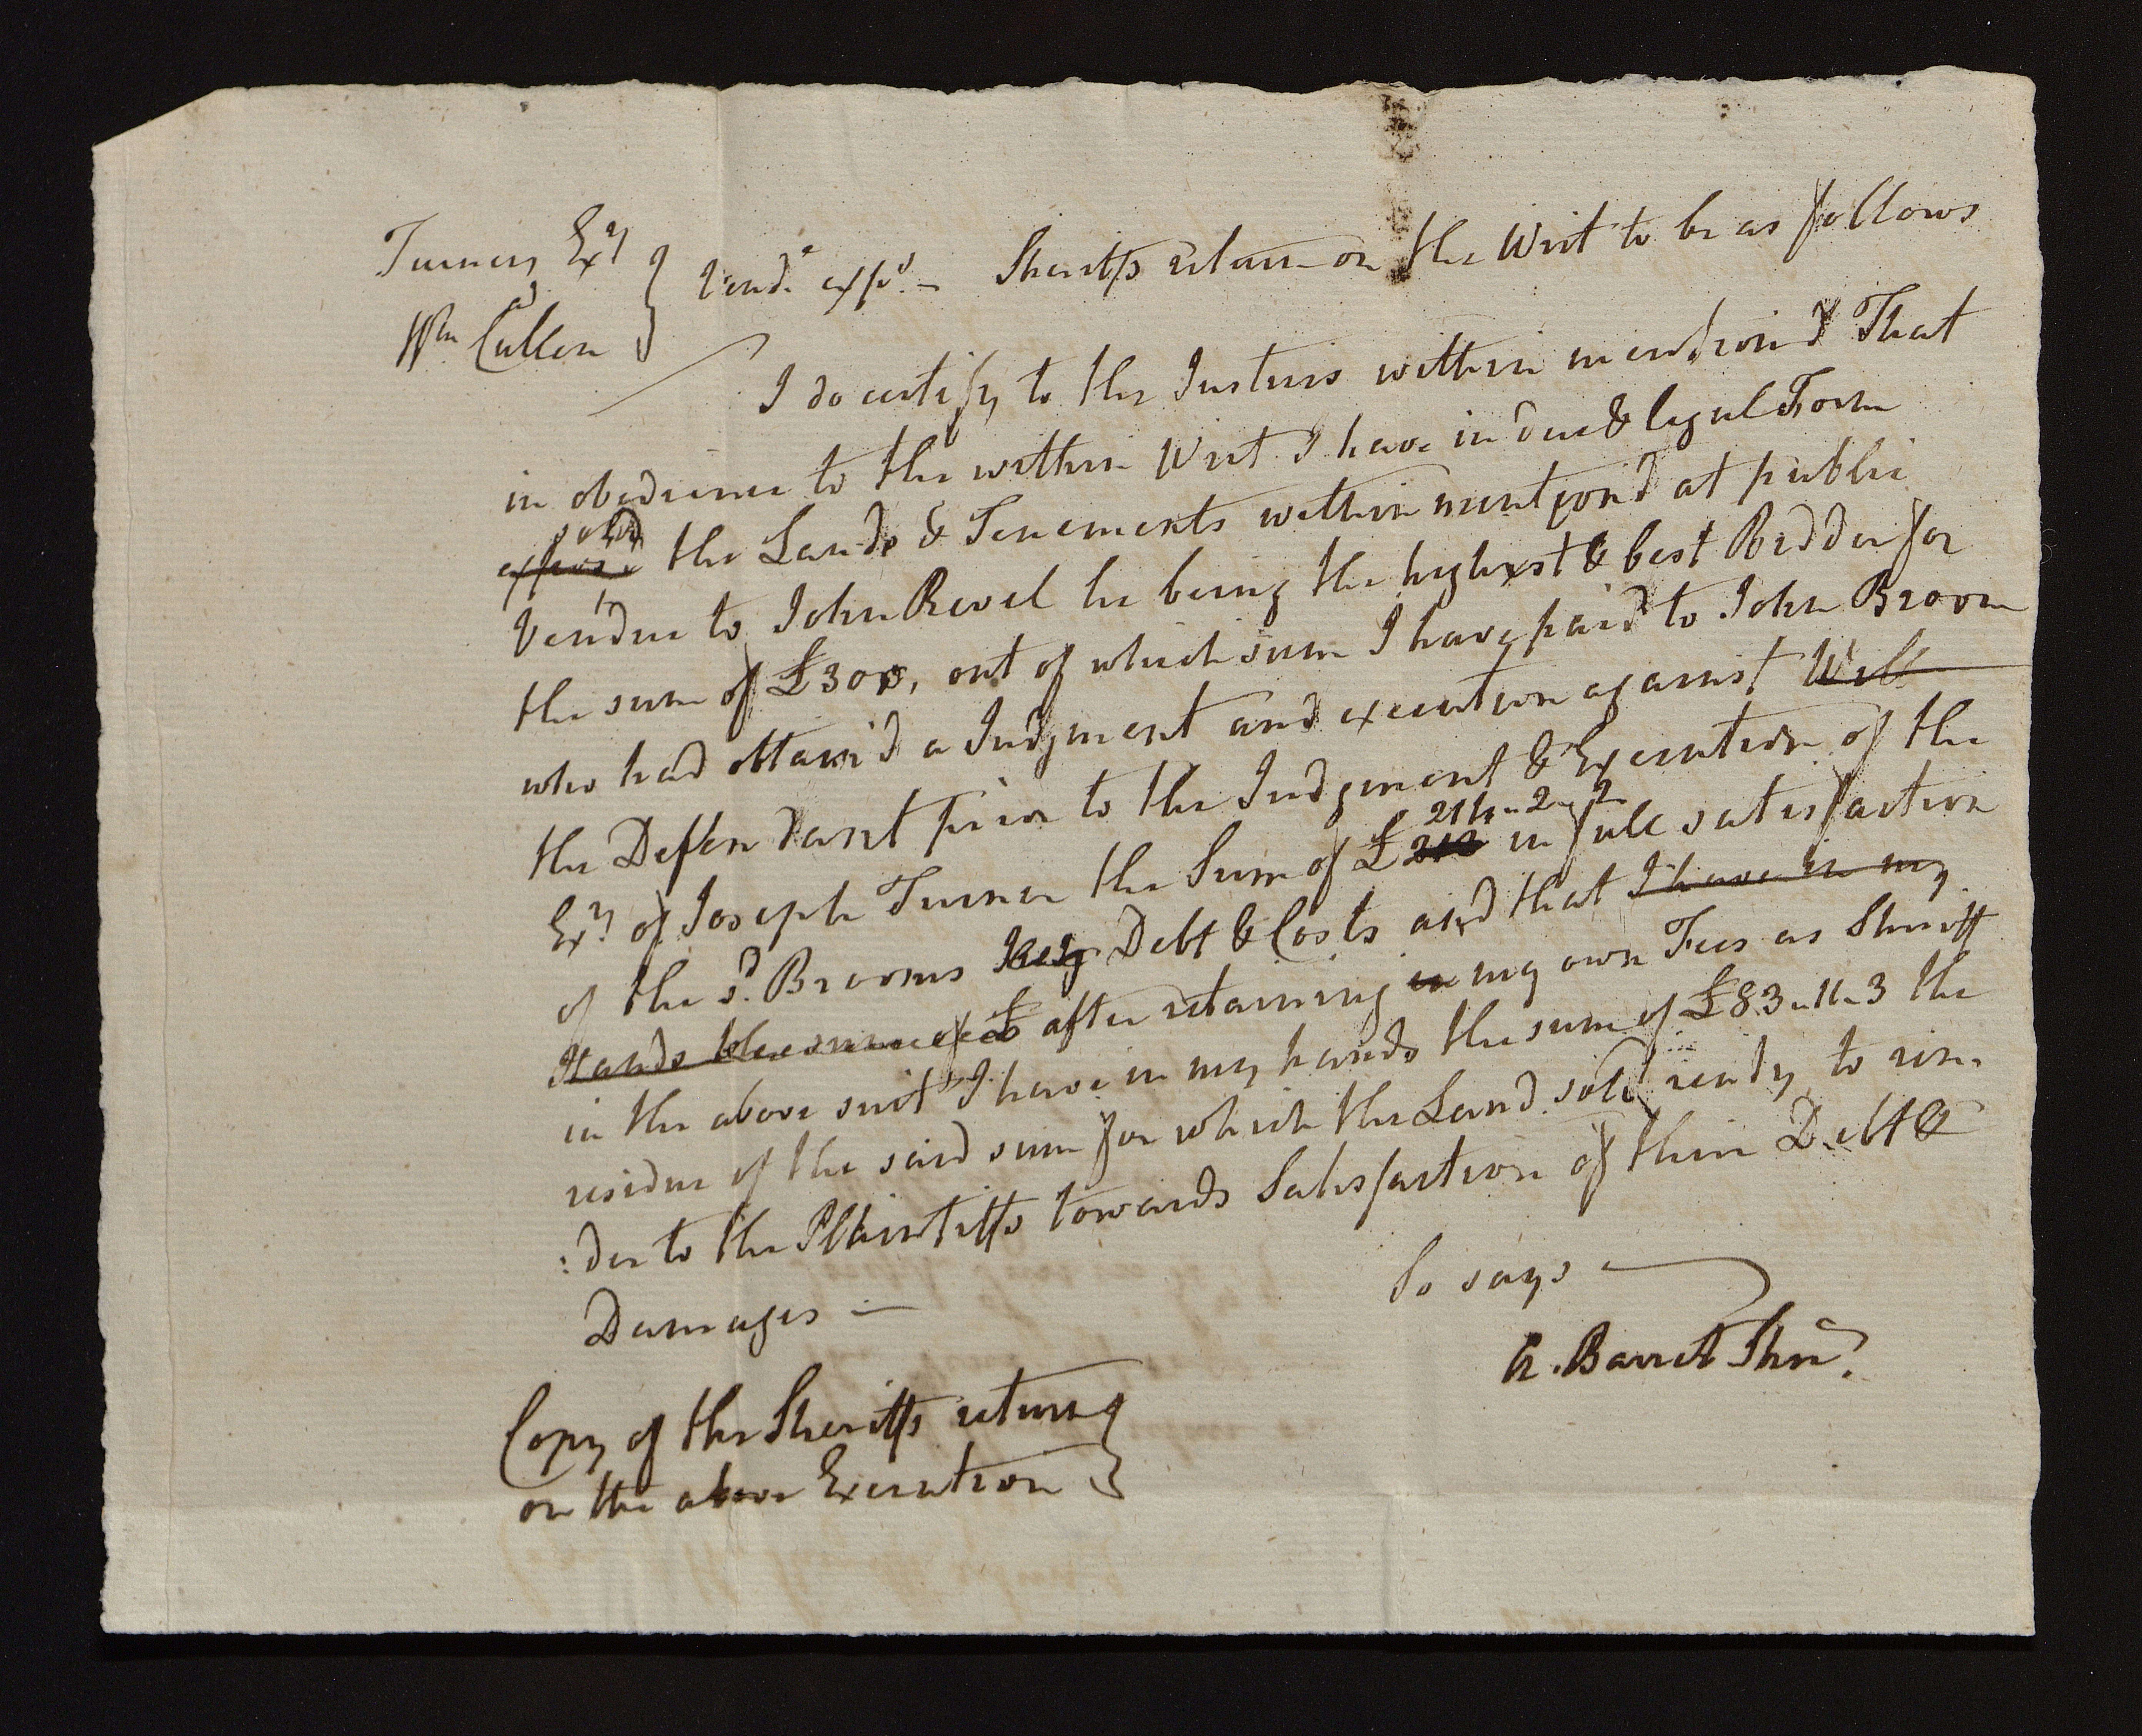 Turners Exrs
agt
Wm Cullen } Vend.e expo.s – Sheriffs return on the Writ to be as follows
I do certify to the Justices within mention'd That
in obedience to the within Writ I have in due & legal Form
sold
expos'd the Lands & Tenements within mention'd at public
Vendue to John Revel he being the highest & best Bidder for
the sum of £300, out of which sum I have paid to John Broom
who had obtain'd a Judgment and execution against Will
the Deffendant prior to the Judgment & Execution of the
Exrs of Joseph Turner the Sum of £ 214-2-2 in full satisfaction
of the sd. Brooms Debt & Costs and that I have in my
Hands the sum of £ after retaining in my own Fees as Sheriff
in the above suit I have in my hands the sum of £83-11-3 the
residue of the said sum for which the Land sold ready to ren-
:der to the Plaintiffs towards Satisfaction of their Debt &
Damages –
So says
A. Barrett Sheri.
Copy of the Sheriffs return }
on the above Execution }